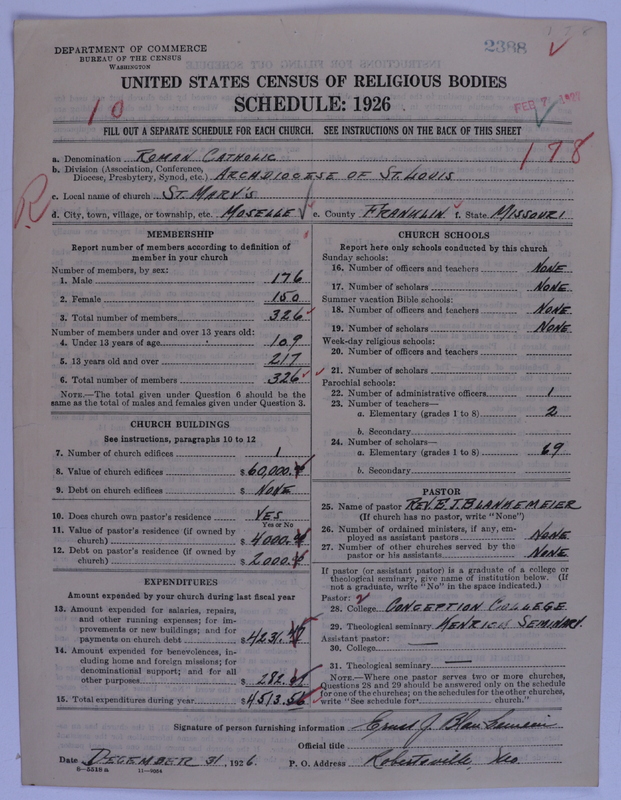 2388
DEPARTMENT OF COMMERCE
BUREAU OF THE CENSUS
WASHINGTON
UNITED STATES CENSUS OF RELIGIOUS BODIES
SCHEDULE: 1926
10
FEB 7
FILL OUT A SEPARATE SCHEDULE FOR EACH CHURCH. SEE INSTRUCTIONS ON THE BACK OF THIS SHEET
178
a. Denomination ROMAN CATHOLIC
b. Division (Association, Conference,
Diocese, Presbytery, Synod, etc.) ARCHDIOCESE OF ST. LOUIS
R
c. Local name of church ST. MARY'S
d. City, town, village, or township, etc. MOSELLE e. County FRANKLIN f. State MISSOURI
MEMBERSHIP
Report number of members according to definition of
member in your church
Number of members, by sex:
1. Male 176
2. Female 150
3. Total number of members 326
Number of members under and over 13 years old:
4. Under 13 years of age 109
5. 13 years old and over 217
6. Total number of members 326
NOTE.—The total given under Question 6 should be
same as the total of males and females given under Question 3.
CHURCH BUILDINGS
See instructions, paragraphs 10 to 12
7. Number of church edifices 1
8. Value of church edifices $60,000.
9. Debt on church edifices $ NONE
10. Does church own pastor's residence YES
Yes or No
11. Value of pastor's residence (if owned by
church) $4000.
12. Debt on pastor's residence (if owned by
church) $2000.
EXPENDITURES
Amount expended by your church during last fiscal year
13. Amount expended for salaries, repairs,
and other running expenses; for im-
provements or new buildings; and for
payments on church debt $4231.
14. Amount expended for benevolences, in-
cluding home and foreign missions; for
denominational support; and for all
other purposes $ 282.
15. Total expenditures during year $4513.56
CHURCH SCHOOLS
Report here only schools conducted by this church
Sunday schools:
16. Number of officers and teachers NONE
17. Number of scholars NONE
Summer vacation Bible schools:
18. Number of officers and teachers NONE
19. Number of scholars NONE
Week-day religious schools:
20. Number of officers and teachers
21. Number of scholars
Parochial schools:
22. Number of administrative officers 1
23. Number of teachers—
a. Elementary (grades 1 to 8) 2
b. Secondary
24. Number of scholars—
a. Elementary (grades 1 to 8) 69
b. Secondary
PASTOR
25. Name of pastor REV. E. J. BLANKEMEIER
(If church has no pastor, write "None")
26. Number of ordained ministers, if any, em-
ployed as assistant pastors NONE
27. Number of other churches served by the
pastor or his assistants NONE
If pastor (or assistant pastor) is a graduate of a college or
theological seminary, give name of institution below. (If
not a graduate, write "No" in the space indicated.)
Pastor: 2
28. College CONCEPTION COLLEGE
29. Theological seminary KENRICK SEMINARY.
Assistant pastor:
30. College —
31. Theological seminary —
NOTE.—Where one pastor serves two or more churches,
Questions 28 and 29 should be answered only on the schedule
for one of the churches; on the schedules for the other churches,
write "See schedule for church."
Signature of person furnishing information Ernest J. Blankemeier
Official title
Date DECEMBER 31, 1926 P. O. Address Robertsville, Mo.
8—5518 a 11—9064